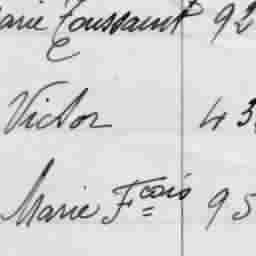 Marie Toussaint 92
Victor 43
Marie Fçois 95